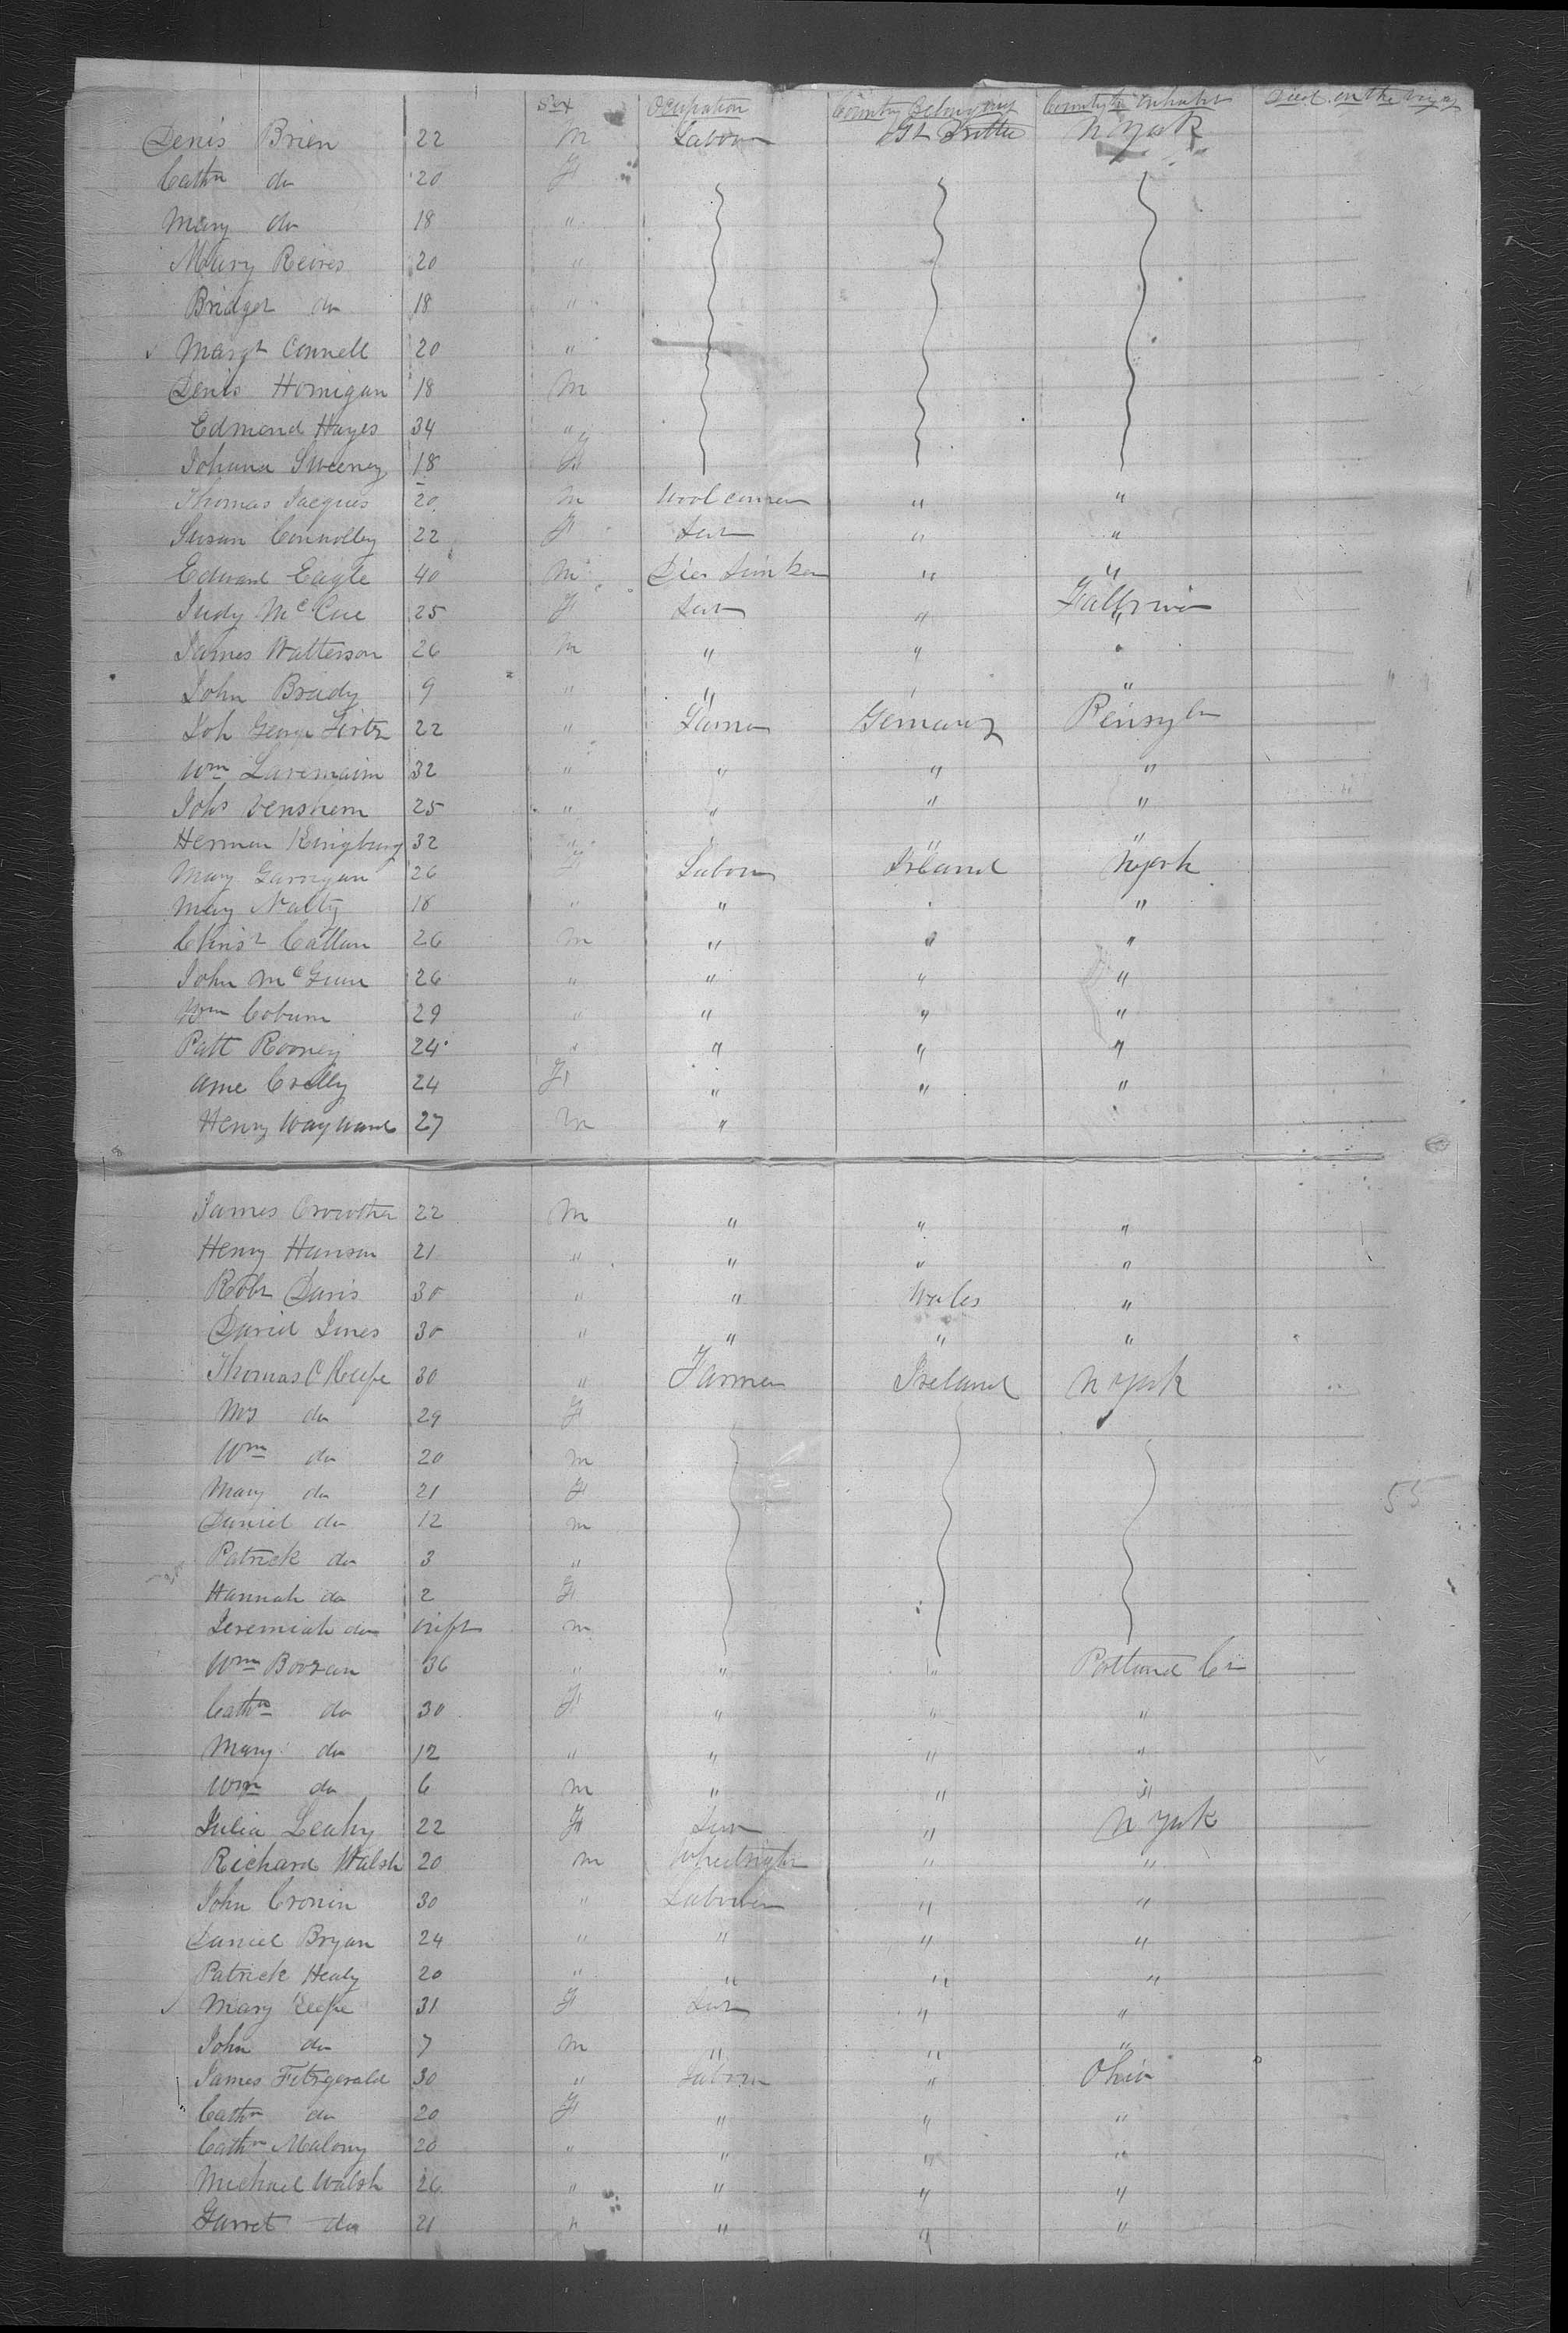 Sex Ocupation Country Belonging Country to inhabit Died on the voyag
Denis Brien 22 M Labour Gt Brittn N York
Cathn do 20 F
Mary do 18 "
Mary Reives 20 "
Bridget do 18 "
Margt Connell 20 "
Denis Hornigan 18 M
Edmond Hayes 34 "
Johana Sweeney 18 F
Thomas Jacques 20 m " "
Susan Connolley 22 F Sert " "
Edward Eagle 40 M " "
Judy McCue 25 F Sert "
James Watterson 26 m " " "
John Brady 9 " " " "
Joh George 22 " Farmer Germany Pensyln
Wm 32 " " " "
Johs Venshem 25 " " " "
Herman Ringburg 32 " " " "
Mary Garrigan 26 F Labour Irland N York
Mary Nalty 18 " " " "
Christ Callan 26 m " " "
John McGunn 26 " " " "
Wm Coburn 29 " " " "
Patt Rooney 24 " " " "
Anne Crelly 24 F " " "
Henry Wayward 27 m "
James Crowther 22 M " " "
Henry Hanson 21 " " " "
Robt Davis 30 " " Wales "
David Jones 30 " " " "
Thomas O Keefe 30 " Farmer Ireland N York
Mrs do 29 F
Wm do 20 m
Mary do 21 F
Daniel do 12 m
Patrick do 3 "
Hannah do 2 F
Jeremiah do inft m
Wm 36 " " " Portland
Cathn do 30 F " " "
Mary do 12 " " " "
Wm do 6 m " " "
Julia Leahy 22 F Sert " N York
Richard Walsh 20 m Wheelright " "
John Cronin 30 " Labourer " "
Daniel Bryan 24 " " " "
Patrick Healy 20 " " " "
Mary Keefe 31 F Sert " "
John do 7 m " " "
James Fitzgerald 30 " Labour " Ohio
Cathn do 20 F " " "
Cathn Malony 20 " " " "
Michael Walsh 26 " " " "
Garret do 21 " " " "
55